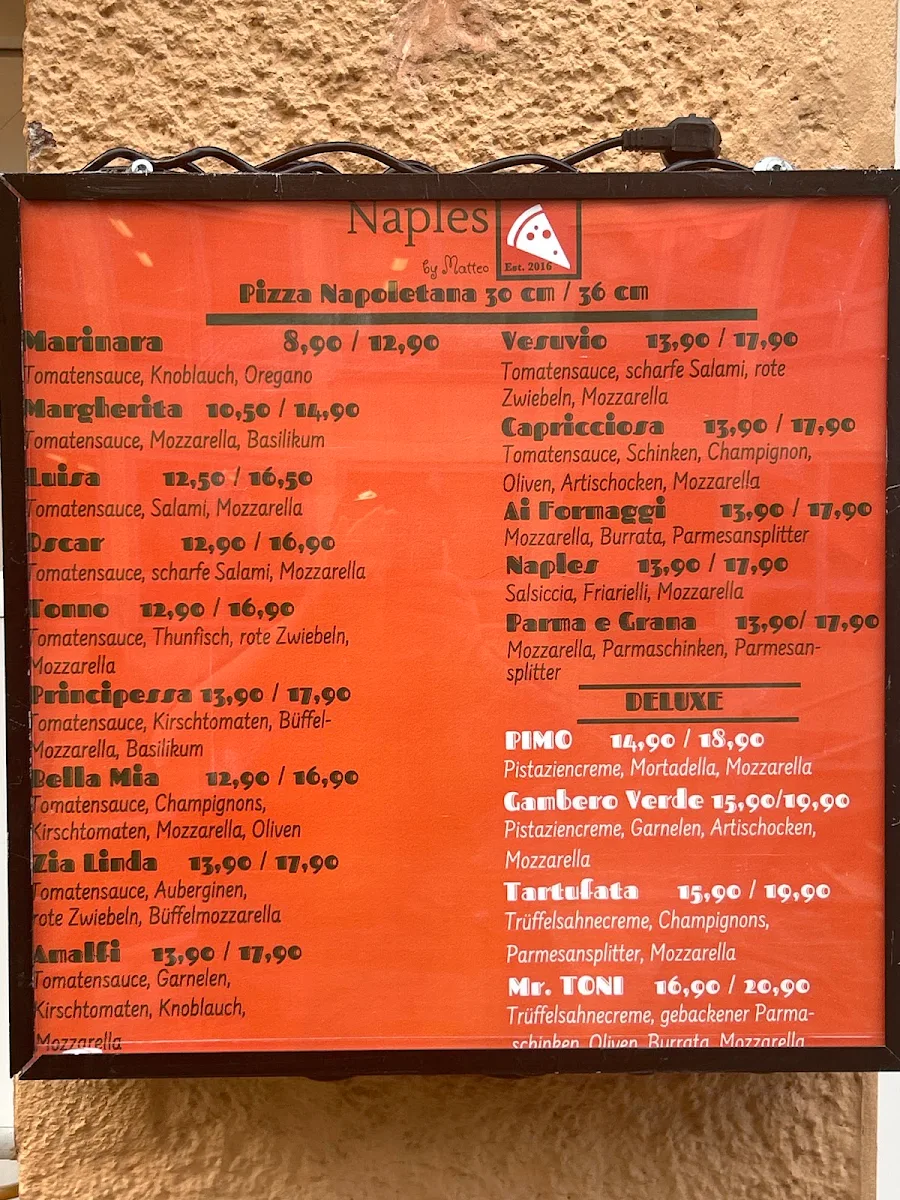 Naples
by Matteo
Est. 2016
Pizza Napoletana 30 cm / 36 cm
Marinara 8,90 / 12,90
Tomatensauce, Knoblauch, Oregano
Margherita 10,50 / 14,90
Tomatensauce, Mozzarella, Basilikum
Luisa 12,50 / 16,50
Tomatensauce, Salami, Mozzarella
Oscar 12,90 / 16,90
Tomatensauce, scharfe Salami, Mozzarella
Tonno 12,90 / 16,90
Tomatensauce, Thunfisch, rote Zwiebeln,
Mozzarella
Principessa 13,90 / 17,90
Tomatensauce, Kirschtomaten, Büffel-
Mozzarella, Basilikum
Bella Mia 12,90 / 16,90
Tomatensauce, Champignons,
Kirschtomaten, Mozzarella, Oliven
Zia Linda 13,90 / 17,90
Tomatensauce, Auberginen,
rote Zwiebeln, Büffelmozzarella
Amalfi 13,90 / 17,90
Tomatensauce, Garnelen,
Kirschtomaten, Knoblauch,
Mozzarella
Vesuvio 13,90 / 17,90
Tomatensauce, scharfe Salami, rote
Zwiebeln, Mozzarella
Capricciosa 13,90 / 17,90
Tomatensauce, Schinken, Champignon,
Oliven, Artischocken, Mozzarella
Ai Formaggi 13,90 / 17,90
Mozzarella, Burrata, Parmesansplitter
Naples 13,90 / 17,90
Salsiccia, Friarielli, Mozzarella
Parma e Grana 13,90/ 17,90
Mozzarella, Parmaschinken, Parmesan-
splitter
DELUXE
PIMO 14,90 / 18,90
Pistaziencreme, Mortadella, Mozzarella
Gambero Verde 15,90/19,90
Pistaziencreme, Garnelen, Artischocken,
Mozzarella
Tartufata 15,90 / 19,90
Trüffelsahnecreme, Champignons,
Parmesansplitter, Mozzarella
Mr. TONI 16,90 / 20,90
Trüffelsahnecreme, gebackener Parma-
schinken, Oliven, Burrata, Mozzarella